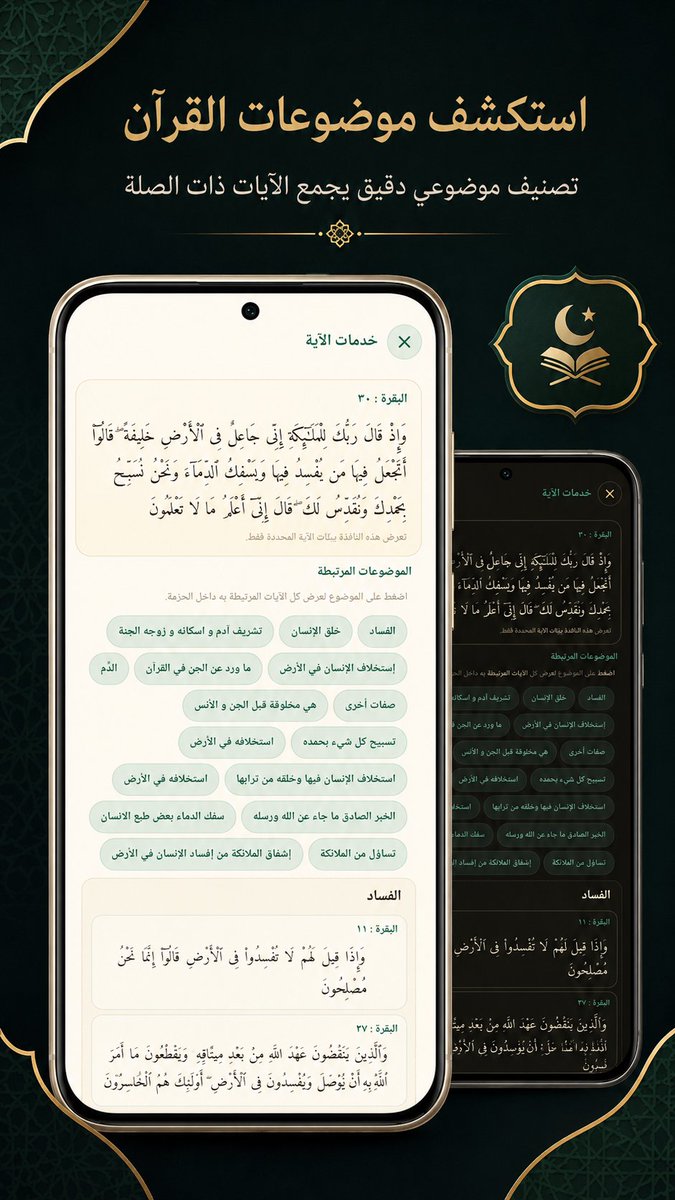 استكشف موضوعات القرآن
تصنيف موضوعي دقيق يجمع الآيات ذات الصلة
خدمات الآية
البقرة : ٣٠
وَإِذْ قَالَ رَبُّكَ لِلْمَلَٰٓئِكَةِ إِنِّى جَاعِلٌ فِى ٱلْأَرْضِ خَلِيفَةً ۖ قَالُوٓا۟
أَتَجْعَلُ فِيهَا مَن يُفْسِدُ فِيهَا وَيَسْفِكُ ٱلدِّمَآءَ وَنَحْنُ نُسَبِّحُ
بِحَمْدِكَ وَنُقَدِّسُ لَكَ ۖ قَالَ إِنِّىٓ أَعْلَمُ مَا لَا تَعْلَمُونَ
تعرض هذه النافذة بيئات الآية المحددة فقط.
الموضوعات المرتبطة
اضغط على الموضوع لعرض كل الآيات المرتبطة به داخل الحزمة.
الفساد
خلق الإنسان
تشريف آدم و اسكانه و زوجه الجنة
إستخلاف الإنسان في الأرض
ما ورد عن الجن في القرآن
الدَّم
صفات أخرى
هي مخلوقة قبل الجن و الأنس
تسبيح كل شيء بحمده
استخلافه في الأرض
استخلاف الإنسان فيها وخلقه من ترابها
استخلافه في الأرض
الخبر الصادق ما جاء عن الله ورسله
سفك الدماء بعض طبع الانسان
تساؤل من الملائكة
إشفاق الملائكة من إفساد الإنسان في الأرض
الفساد
البقرة : ١١
وَإِذَا قِيلَ لَهُمْ لَا تُفْسِدُوا۟ فِى ٱلْأَرْضِ قَالُوٓا۟ إِنَّمَا نَحْنُ
مُصْلِحُونَ
البقرة : ٢٧
وَٱلَّذِينَ يَنقُضُونَ عَهْدَ ٱللَّهِ مِنۢ بَعْدِ مِيثَٰقِهِۦ وَيَقْطَعُونَ مَآ أَمَرَ
ٱللَّهُ بِهِۦٓ أَن يُوصَلَ وَيُفْسِدُونَ فِى ٱلْأَرْضِ ۚ أُو۟لَٰٓئِكَ هُمُ ٱلْخَٰسِرُونَ
خدمات الآية
البقرة : ٣٠
وَإِذْ قَالَ رَبُّكَ لِلْمَلَٰٓئِكَةِ إِنِّى جَاعِلٌ فِى
أَتَجْعَلُ فِيهَا مَن يُفْسِدُ فِيهَا وَيَسْفِكُ
بِحَمْدِكَ وَنُقَدِّسُ لَكَ ۖ قَالَ إِنِّىٓ أَعْلَمُ مَا لَا
تعرض هذه النافذة بيئات الآية المحددة فقط.
الموضوعات المرتبطة
اضغط على الموضوع لعرض كل الآيات المرتبطة به داخل
الفساد
خلق الإنسان
تشريف آدم و اسكانه
إستخلاف الإنسان في الأرض
ما ورد عن الجن
صفات أخرى
هي مخلوقة قبل الجن و الأنس
تسبيح كل شيء بحمده
استخلافه في الأرض
استخلاف الإنسان فيها وخلقه من ترابها
الخبر الصادق ما جاء عن الله ورسله
سفك الدماء
تساؤل من الملائكة
إشفاق الملائكة من إفساد
الفساد
البقرة : ١١
وَإِذَا قِيلَ لَهُمْ لَا تُفْسِدُوا۟ فِى ٱلْأَرْضِ
مُصْلِحُونَ
البقرة : ٢٧
وَٱلَّذِينَ يَنقُضُونَ عَهْدَ ٱللَّهِ مِنۢ بَعْدِ